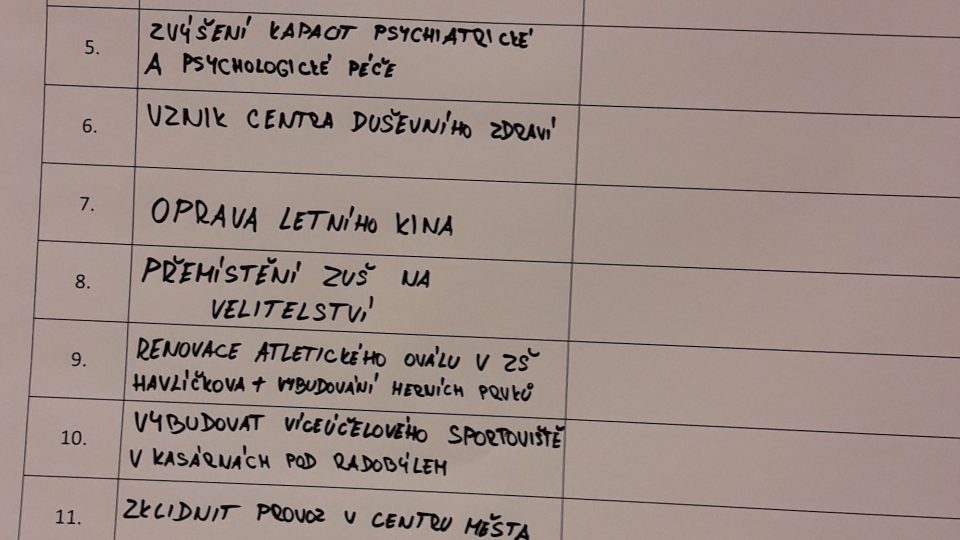 5. ZVÝŠENÍ KAPACIT PSYCHIATRICKÉ
A PSYCHOLOGICKÉ PÉČE
6. VZNIK CENTRA DUŠEVNÍHO ZDRAVÍ
7. OPRAVA LETNÍHO KINA
8. PŘEMÍSTĚNÍ ZUŠ NA
VELITELSTVÍ
9. RENOVACE ATLETICKÉHO OVÁLU V ZŠ
HAVLÍČKOVA + VYBUDOVÁNÍ HERNÍCH PRVKŮ
10. VYBUDOVAT VÍCEÚČELOVÉHO SPORTOVIŠTĚ
V KASÁRNÁCH POD RADOBÝLEM
11. ZKLIDNIT PROVOZ V CENTRU MĚSTA